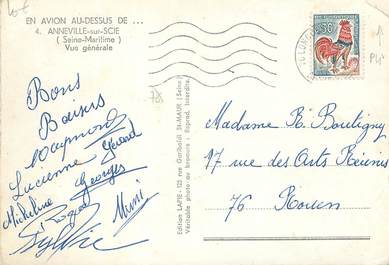 EN AVION AU-DESSUS DE ...
4. ANNEVILLE-sur-SCIE
(Seine-Maritime)
Vue générale
Bons
Baisers
Raymond
Lucienne Gérard
Micheline Georges
Roger Mimi
Sylvie
Edition LAPIE - 125 rue Garibaldi St-MAUR (Seine)
Véritable photo au bromure - Reprod. interdite.
Madame R. Boutigny
17 rue des Arts Réunis
76 Rouen